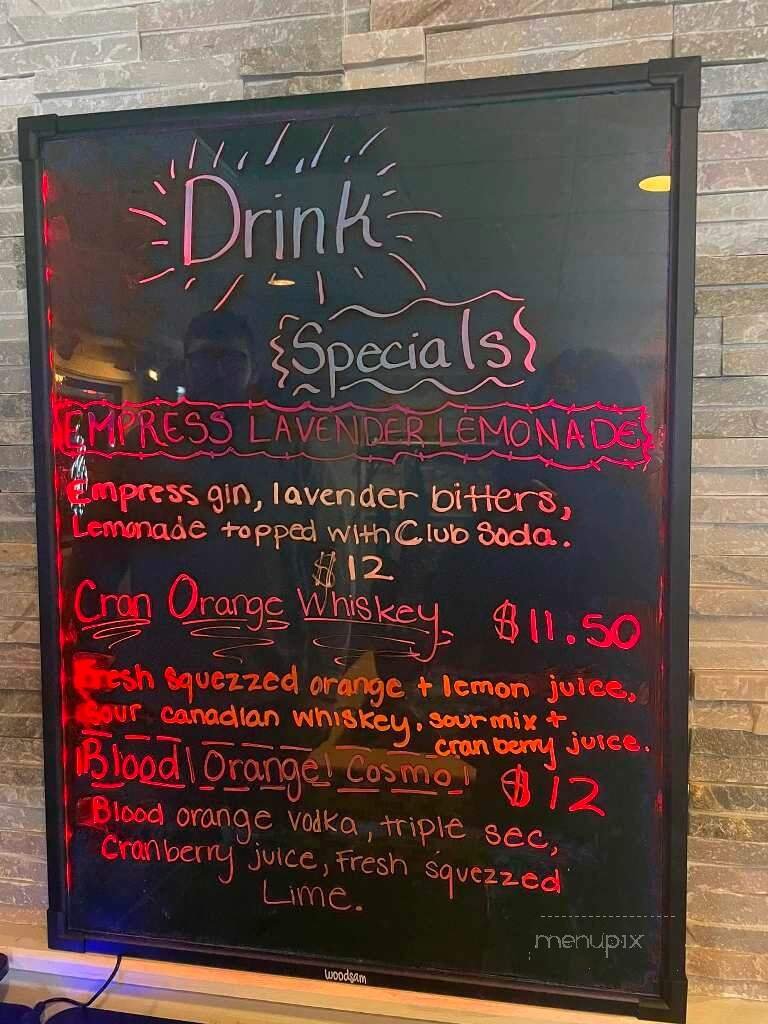 Drink
Specials
EMPRESS LAVENDER LEMONADE
Empress gin, lavender bitters,
Lemonade topped with Club Soda.
$12
Cran Orange Whiskey $11.50
Fresh squezzed orange + lemon juice,
sour canadian whiskey, sour mix +
cranberry juice.
Blood Orange Cosmo $12
Blood orange vodka, triple sec,
Cranberry juice, Fresh squezzed
Lime.
menupix
woodsam